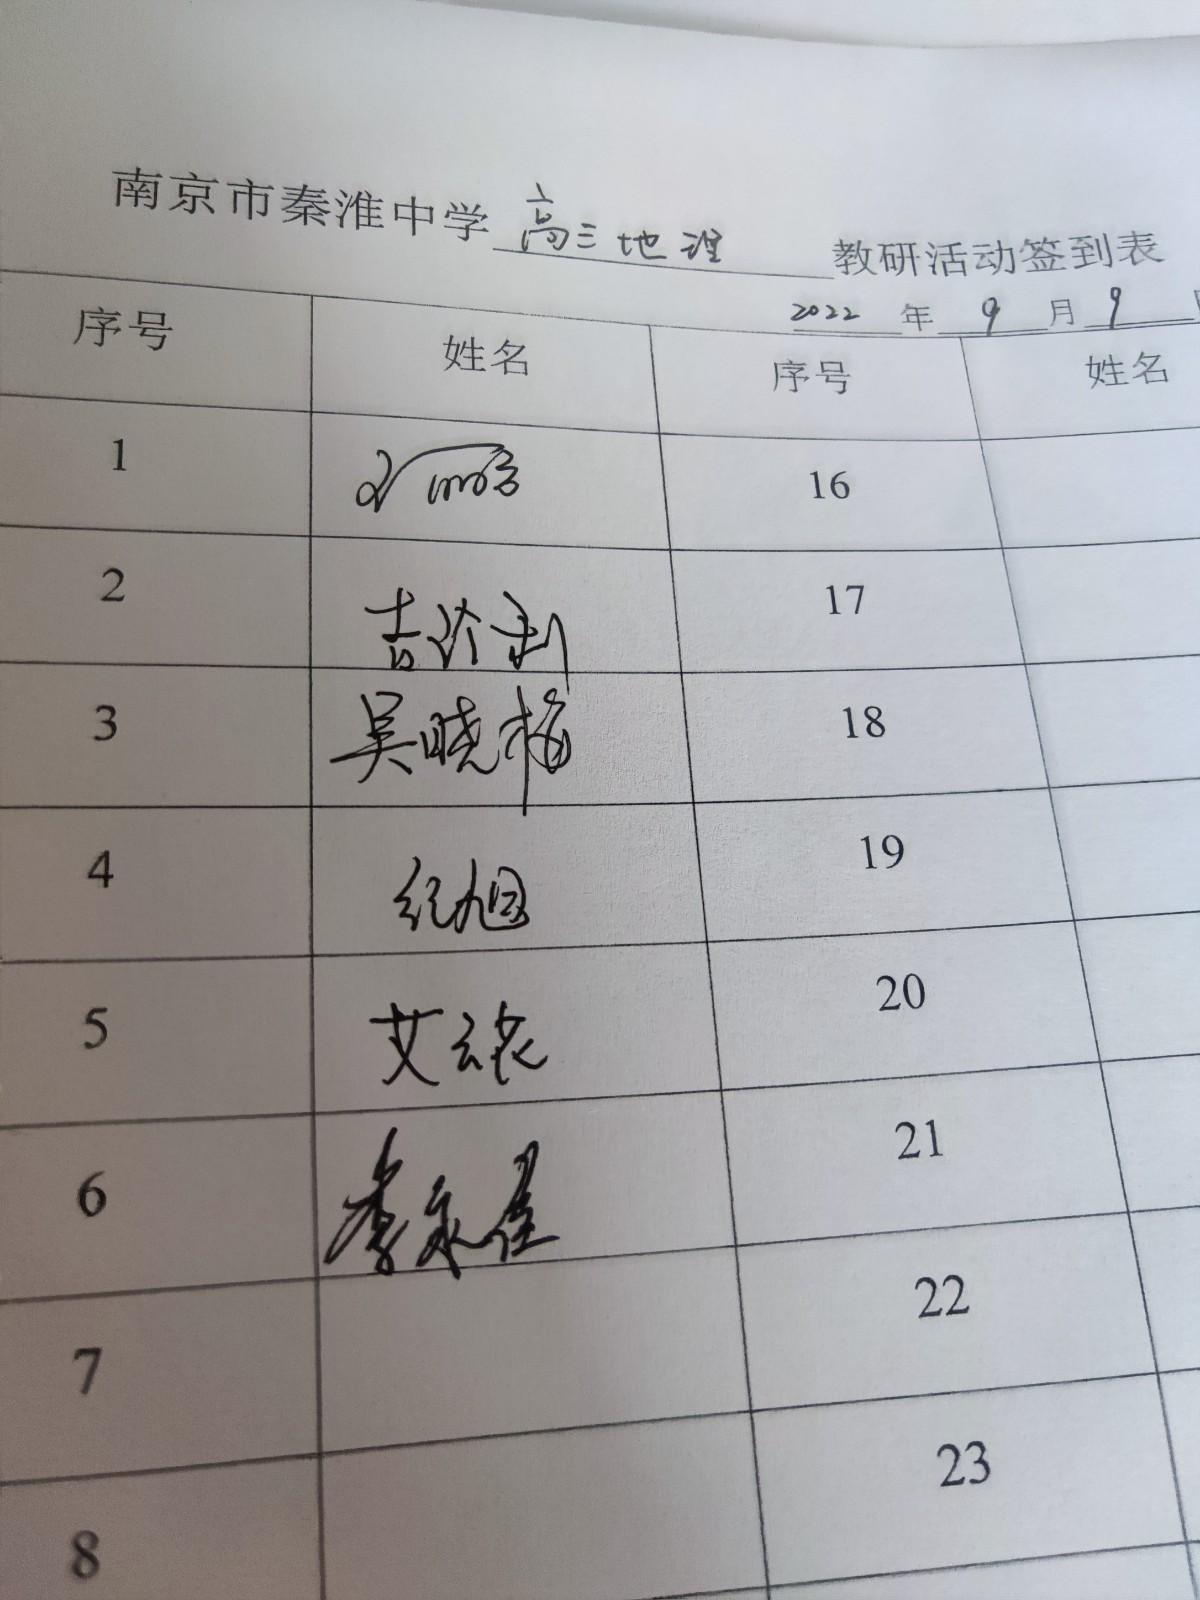 南京市秦淮中学 高三地理 教研活动签到表
2022 年 9 月 9
序号 姓名 序号 姓名
1 16
2 17
3 吴晓梅 18
4 纪旭 19
5 艾云 20
6 李永 21
7 22
8 23